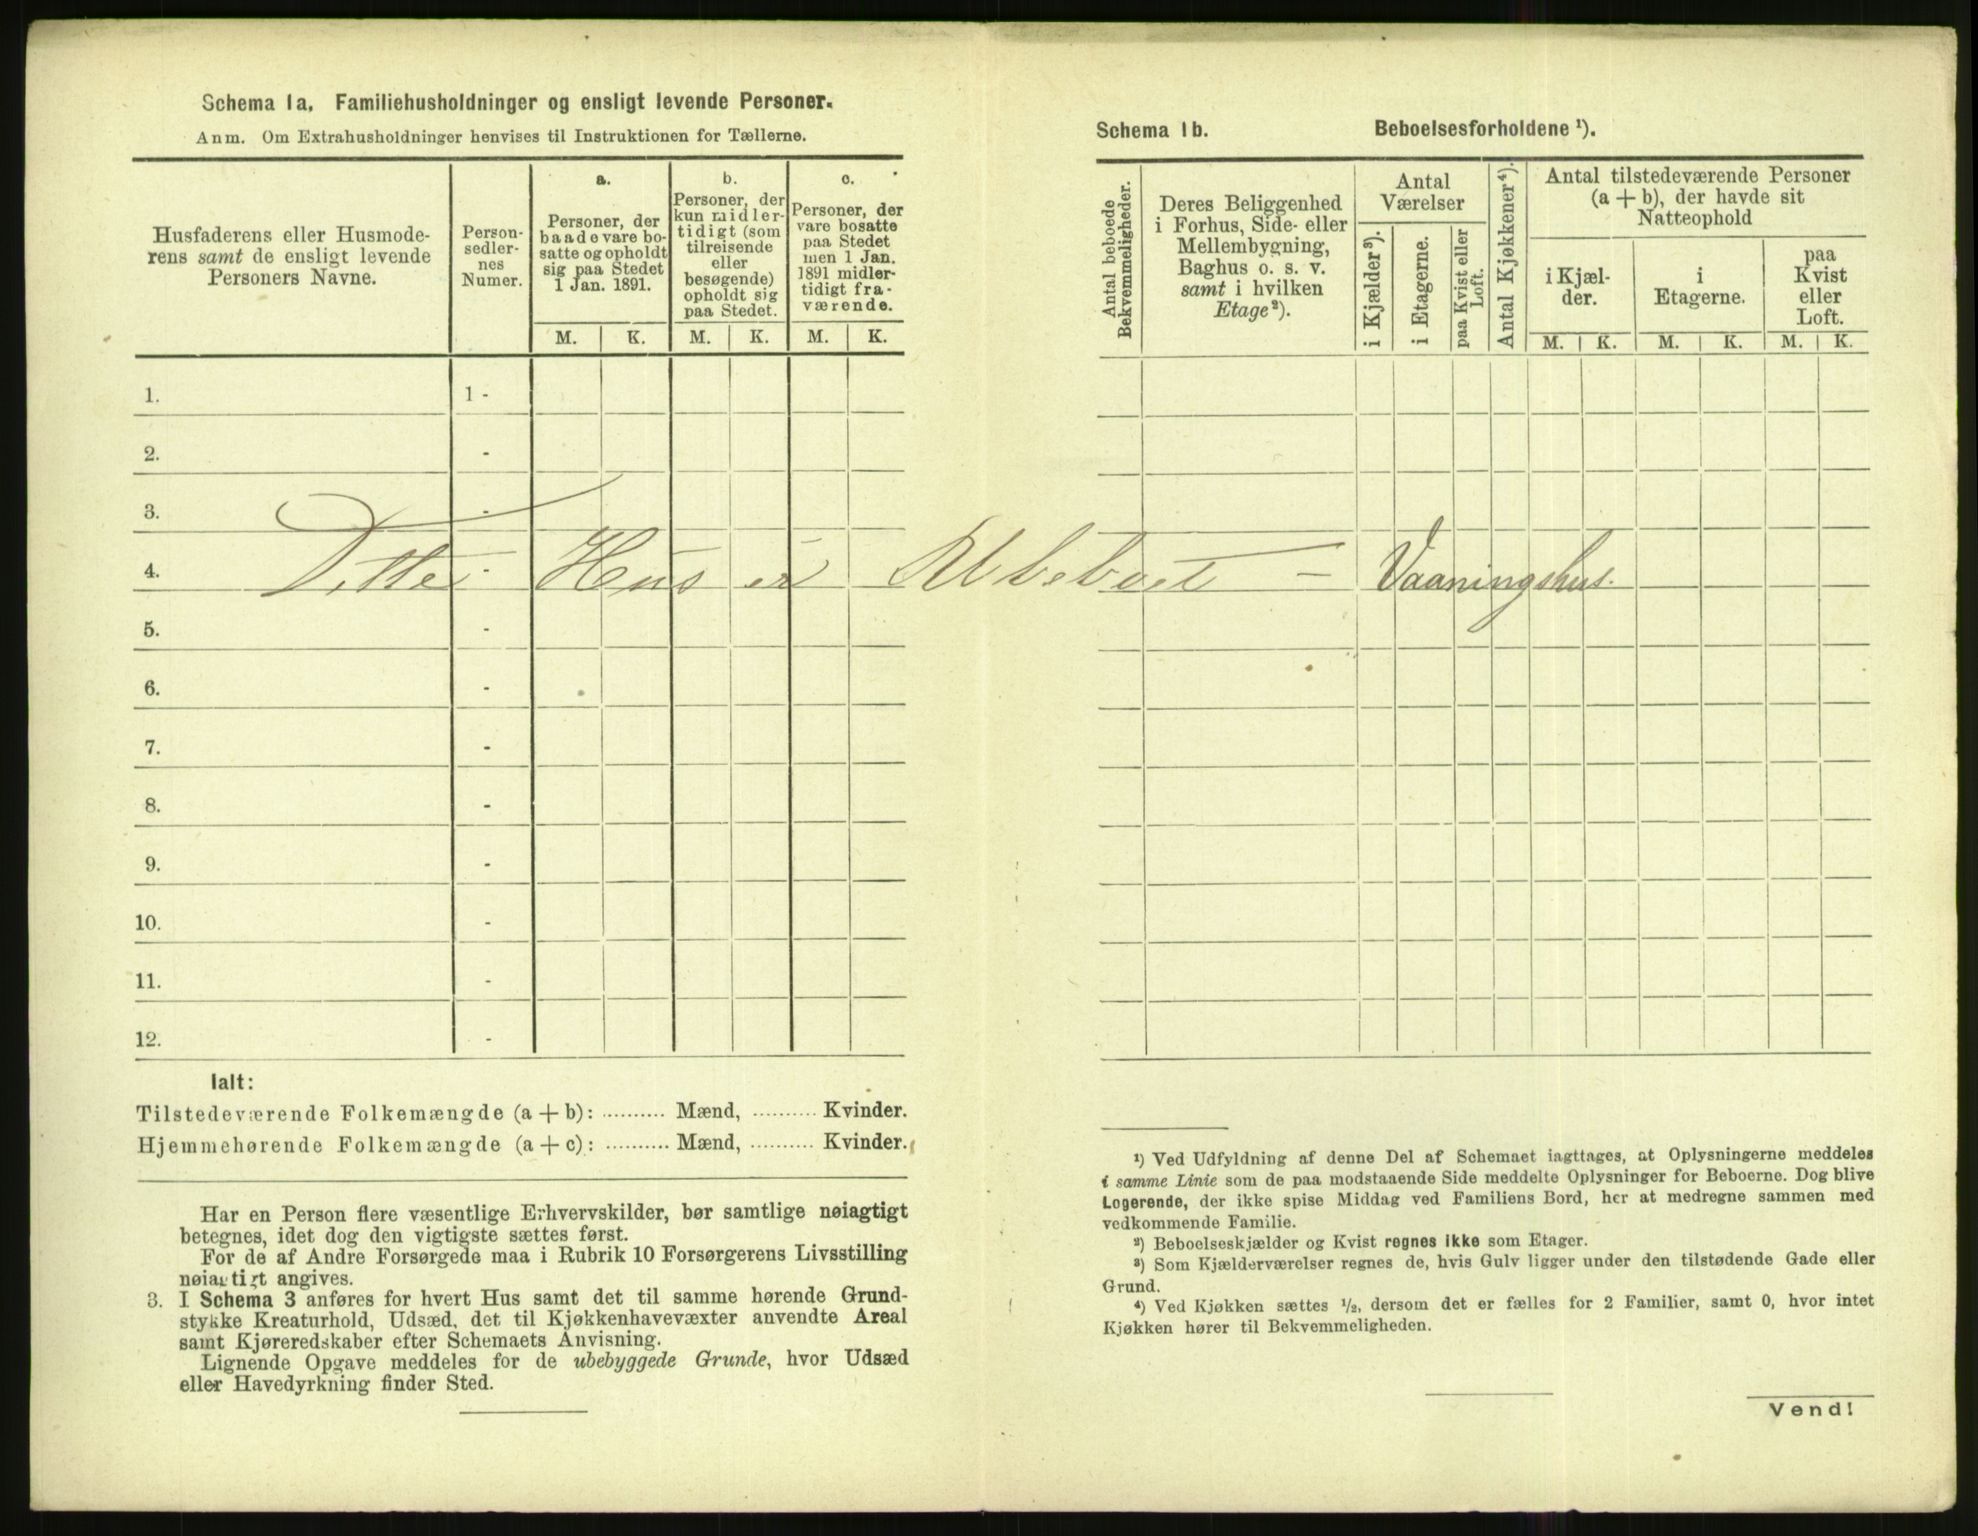 Schema 1a. Familiehusholdninger og ensligt levende Personer.
Anm. Om Extrahusholdninger henvises til Instruktionen for Tællerne.
Husfaderens eller Husmode-
rens samt de ensligt levende
Personers Navne.
Person-
sedler-
nes
Numer.
a.
Personer, der
baade vare bo-
satte og opholdt
sig paa Stedet
1 Jan. 1891.
b.
Personer, der
kun midler-
tidigt (som
tilreisende
eller
besøgende)
opholdt sig
paa Stedet.
c.
Personer, der
vare bosatte
paa Stedet
men 1 Jan.
1891 midler-
tidigt fra-
værende.
M. K. M. K. M. K.
1. 1 -
2. -
3. -
4. -
Dette Hus er Ubeboet – Vaaningshus.
5. -
6. -
7. -
8. -
9. -
10. -
11. -
12. -
Ialt:
Tilstedeværende Folkemængde (a + b): .......... Mænd, .......... Kvinder.
Hjemmehørende Folkemængde (a + c): .......... Mænd, .......... Kvinder.
Har en Person flere væsentlige Erhvervskilder, bør samtlige nøiagtigt
betegnes, idet dog den vigtigste sættes først.
For de af Andre Forsørgede maa i Rubrik 10 Forsørgerens Livsstilling
nøiagtigt angives.
3. I Schema 3 anføres for hvert Hus samt det til samme hørende Grund-
stykke Kreaturhold, Udsæd, det til Kjøkkenhavevæxter anvendte Areal
samt Kjøreredskaber efter Schemaets Anvisning.
Lignende Opgave meddeles for de ubebyggede Grunde, hvor Udsæd
eller Havedyrkning finder Sted.
Schema 1b. Beboelsesforholdene ¹).
Antal beboede
Bekvemmeligheder.
Deres Beliggenhed
i Forhus, Side- eller
Mellembygning,
Baghus o. s. v.
samt i hvilken
Etage ²).
Antal
Værelser
i Kjælder ³).
i Etagerne.
paa Kvist eller
Loft.
Antal Kjøkkener ⁴).
Antal tilstedeværende Personer
(a + b), der havde sit
Natteophold
i Kjæl-
der.
i
Etagerne.
paa
Kvist
eller
Loft.
M. K. M. K. M. K.
¹) Ved Udfyldning af denne Del af Schemaet iagttages, at Oplysningerne meddeles
i samme Linie som de paa modstaaende Side meddelte Oplysninger for Beboerne. Dog blive
Logerende, der ikke spise Middag ved Familiens Bord, her at medregne sammen med
vedkommende Familie.
²) Beboelseskjælder og Kvist regnes ikke som Etager.
³) Som Kjælderværelser regnes de, hvis Gulv ligger under den tilstødende Gade eller
Grund.
⁴) Ved Kjøkken sættes ½, dersom det er fælles for 2 Familier, samt 0, hvor intet
Kjøkken hører til Bekvemmeligheden.
Vend!